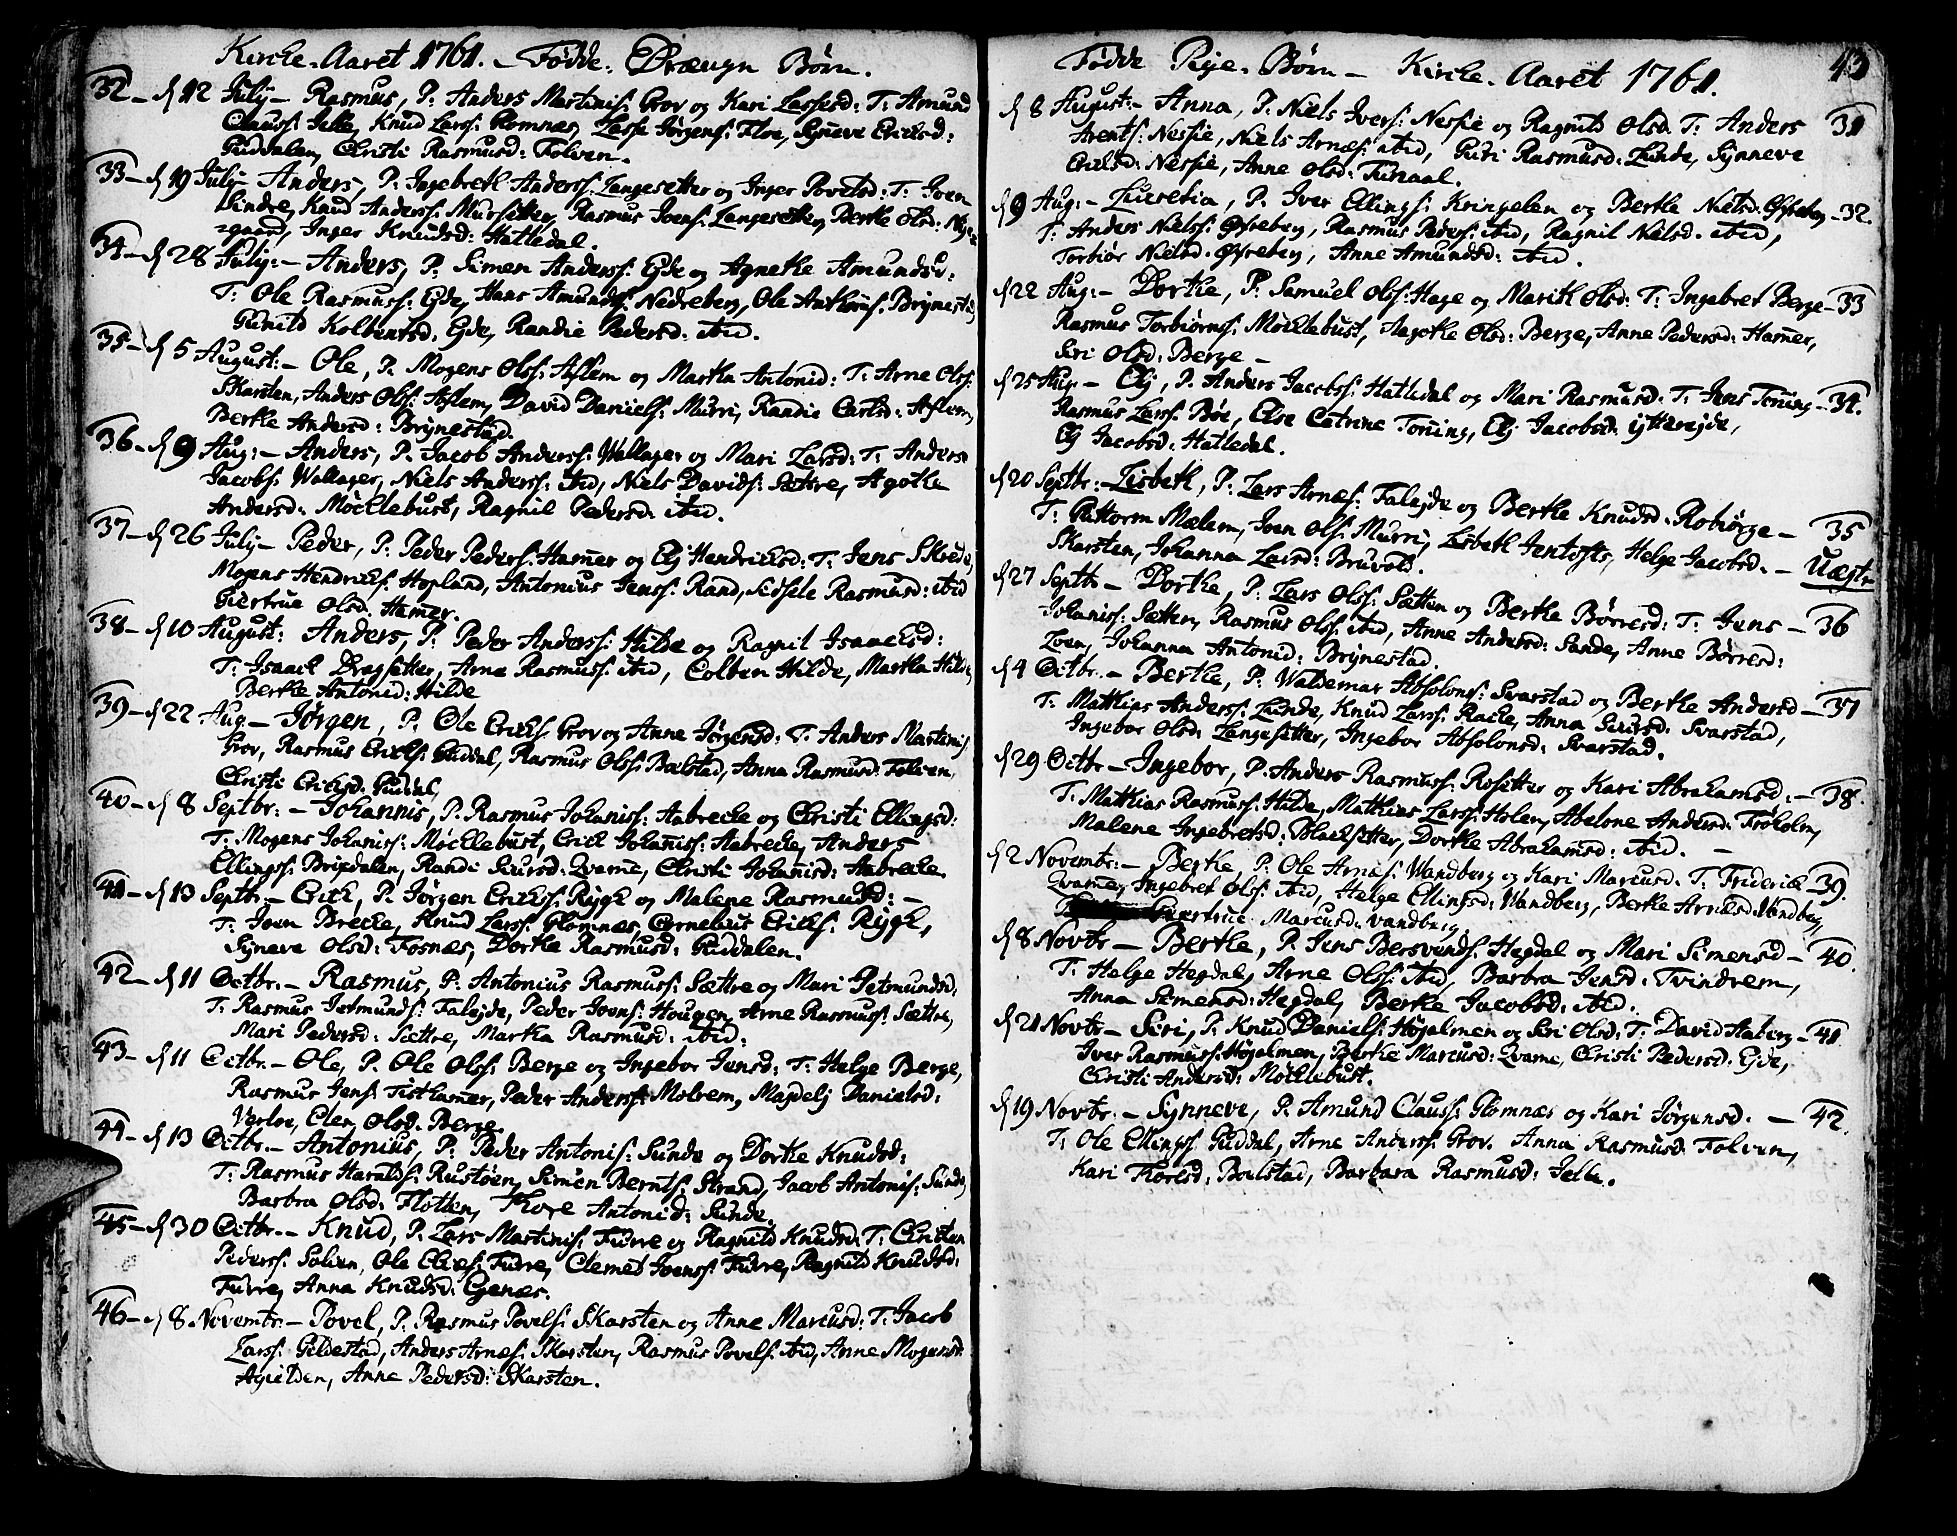 Kircke-Aaret 1761. - Fødde. Drængn Børn.
32 - d 12 Julj - Rasmus, P: Anders Martinis: Grov og Kari Lassesd: T: Amund
Clauss: Jelle, Knud Larss: Glomnæs, Lasse Jørgens: Floe, Sÿneve Ericksd:
Guddalen, Christi Rasmusd: Tolven.
33 - d 19 Julj - Anders, P: Ingebreth Anderss: Langesetter og Inger Povelsd: T: Joen
Sindre, Knud Anderss: Mursetter, Rasmus Joens: Langesetter, Berthe Olsd: Nÿe-
gaard, Inger Knudsd: Hattledal.
34 - d 28 Julj: - Anders, P: Simen Anderss: Eÿde og Agnethe Amundsd:
T: Ole Rasmuss: Eÿde, Hans Amunds: Nedreberg, Ole Anthons: Brÿnestad,
Gunild Kolbentsd: Eÿde, Randie Pedersd: ibid.
35 - d 5 August: - Ole, P. Mogens Olss: Aflem og Martha Antonid: T: Arne Olss:
Skarsten, Anders Olss: Aflem, David Daniels: Murri, Randie Carlsd: Aflem,
Berthe Andersd: Brÿnestad.
36 - d 9 Aug: - Anders, P. Jacob Anderss: Wallager og Mari Larsd: T: Anders
Jacobs: Wallager, Niels Anderss: ibid, Niels Davids: Sættre, Agothe
Andersd: Möcklebust, Ragnil Pedersd: ibid.
37 - d 26 Julj - Peder, P: Peder Peders: Hamer og Elj Hendricksd: T: Jens Skrede,
Mogens Hendricks: Hopland, Antonius Jenss: Rand, Sidsele Rasmusd: ibid
Giertrue Olsd: Hamer.
38 - d 10 August: Anders, P: Peder Anderss: Hilde og Ragnil Isaacksd:
T: Isaack Dragsetter, Arne Rasmuss: ibid, Colben Hilde, Martha Hilde,
Berthe Antonid: Hilde
39 - d 22 Aug - Jørgen, P: Ole Ericks: Grov og Anne Jørgensd: T: Anders Martinis
Grov, Rasmus Ericks: Guddal, Rasmus Olss: Balstad, Anna Rasmusd: Tolven,
Christi Ericksd: Guddal,
40 - d 8 Septbr: - Johannis, P. Rasmus Johanis: Aabrecke og Christi Ellingsd:
T: Mogens Johanis: Möcklebust, Erick Johanis: Aabrecke, Anders
Ellingss: Brigsdalen, Randi Siursd: Qvame, Christi Johanisd: Aabrecke.
41 - d 13 Septbr - Erick, P: Jørgen Ericks: Rÿgh og Malene Rasmusd: -
T: Joen Brecke, Knud Larss: Glomnæs, Cornelius Ericks: Rÿgh,
Sÿneve Olsd: Fosnæs, Dorthe Rasmusd: Guddalen.
42 - d 11 Octbr. - Rasmus, P: Antonius Rasmuss: Sættre og Mari Jetmundsd:
T: Rasmus Jetmunds: Falejde, Peder Joens: Hougen, Arne Rasmuss: Sættre,
Mari Pedersd: Sættre, Martha Rasmusd: ibid:
43 - d 11 Octbr. - Ole, P. Ole Olss: Berge og Ingebor Jensd: T: Helge Berge,
Rasmus Jens: Tisthamer, Peder Anderss: Molrem, Magdelj Danielsd:
Verloe, Elen Olsd: Berge.
44 - d 13 Octbr. - Antonius, P: Peder Antonis: Sunde og Dorthe Knudsd:
T: Rasmus Haralds: Rustöen, Simen Bernts: Strand, Jacob Antonis: Sunde,
Barbra Olsd: Flotten, Thore Antonid: Sunde.
45 - d 30 Octbr. - Knud, P. Lars Martinis: Furre og Ragnild Knudsd: T: Christen
Pederss: Solven, Ole Elies: Furre, Clemet Joenss: Furre, Ragnild Knudsd:
Furre, Anna Knudsd: Egenæs.
46 - d 8 Novembr: - Povel, P: Rasmus Povels: Skarsten og Anne Marcusd: T: Jacob
Larss: Gildestad, Anders Arnes: Skarsten, Rasmus Povels: ibid, Anne Mogensd:
Agielden, Anne Pedersd: Skarsten.
43
Fødde Pige-Børn - Kircke-Aaret 1761.
d 8 August: - Anna, P. Niels Ivers: Nesfie og Ragnild Olsd. T: Anders 31
Arents: Nesfie, Niels Arnes: ibid, Guri Rasmusd: Lunde, Sÿnneve
Ericksd: Nesfie, Anne Olsd: Tunaal.
d 9 Aug: - Lucretia, P. Iver Ellings: Kringelen og Berthe Nielsd. Øvreberg - 32.
T: Anders Nielss: Øvreberg, Rasmus Pederss: ibid, Ragnil Nielsd. ibid,
Torbiør Nielsd. Øvreberg, Anne Amundsd: ibid.
d 22 Aug: - Dorthe, P: Samuel Olss: Hage og Marith Olsd: T: Ingebret Berge - 33
Rasmus Torbiørns: Möcklebust, Aagothe Olsd: Berge, Anne Pedersd: Hamer,
Siri Olsd: Berge -
d 25 Aug - Elj, P. Anders Jacobss: Hattledal og Mari Rasmusd: T: Jens Toning - 34.
Rasmus Larss: Bøe, Else Catrine Toning, Elj Jacobsd: ÿtterejde,
Elj Jacobsd: Hatledal.
d 20 Septbr: - Lisbeth, P: Lars Arnes: Falejde og Berthe Knudsd. Robiørge - 35
T: Guttorm Mælem, Joen Olss: Murri, Lisbeth Jentofts, Helge Jacobsd. - Uægte
Skarsten, Johanna Larsd: Bruvold.
d 27 Septbr - Dorthe, P: Lars Olss: Sætten og Berthe Børresd: T: Jens - 36
Johanis: Sætten, Rasmus Olss: ibid, Anne Andersd: Sande, Anne Børresd:
Loen, Johanna Antonid: Brÿnestad.
d 4 Octbr. - Berthe, P. Waldemar Absolons: Svarstad og Berthe Andersd - 37
T: Matthias Anderss: Lunde, Knud Larss: Racke, Anna Siursd: Svarstad,
Ingebor Olsd: Langesetter, Ingebor Absolonsd: Svarstad.
d 29 Octbr - Ingebor, P. Anders Rasmuss: Rosetter og Kari Abrahamsd: - 38.
T: Matthias Rasmuss: Hilde, Matthias Larss: Holen, Abelone Andersd: Frøholm,
Malene Ingebretsd: Blacksetter, Dorthe Abrahamsd: ibid. -
d 2 Novembr: - Berthe, P: Ole Arnes: Wandberg og Kari Marcusd. T: Friderick 39.
Qvame, Ingebret Olss: ibid, Helge Ellingsd: Wandberg, Berthe Arnesd: Wandberg,
Giertrue Marcusd: Vandberg.
d 8 Novbr - Berthe, P. Jens Bersvends: Hegdal og Mari Simensd - 40.
T: Helge Hegdal, Arne Olss: ibid, Barbra Jensd: Tvindrem,
Anna Simensd: Hegdal, Berthe Jacobsd: ibid.
d 21 Novbr - Siri, P. Knud Daniels: Højalmen og Siri Olsd: T: David Aaberg - 41
Iver Rasmuss: Højalmen, Berthe Marcusd: Qvame, Christi Pedersd: Eÿde,
Christi Andersd: Möcklebust.
d 19 Novbr: - Sÿnneve, P. Amund Clauss: Glomnæs og Kari Jørgensd. - 42.
T: Ole Ellings: Guddal, Arne Anderss: Grov. Anna Rasmusd Tolven,
Kari Floresd: Balstad, Barbara Rasmusd: Jelle.